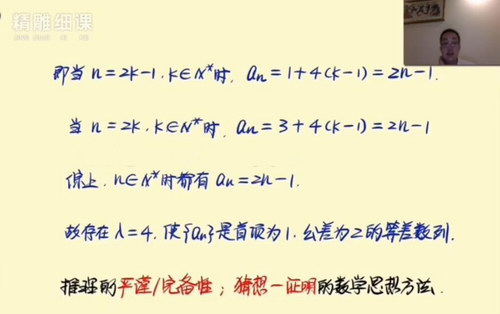 精雕细课
即当 n=2k-1, k∈N*时, an=1+4(k-1)=2n-1.
当 n=2k, k∈N*时, an=3+4(k-1)=2n-1
综上, n∈N*时都有 an=2n-1.
故存在 λ=4, 使{an}是首项为1, 公差为2的等差数列.
推理的严谨/完备性; 猜想一证明的数学思想方法.